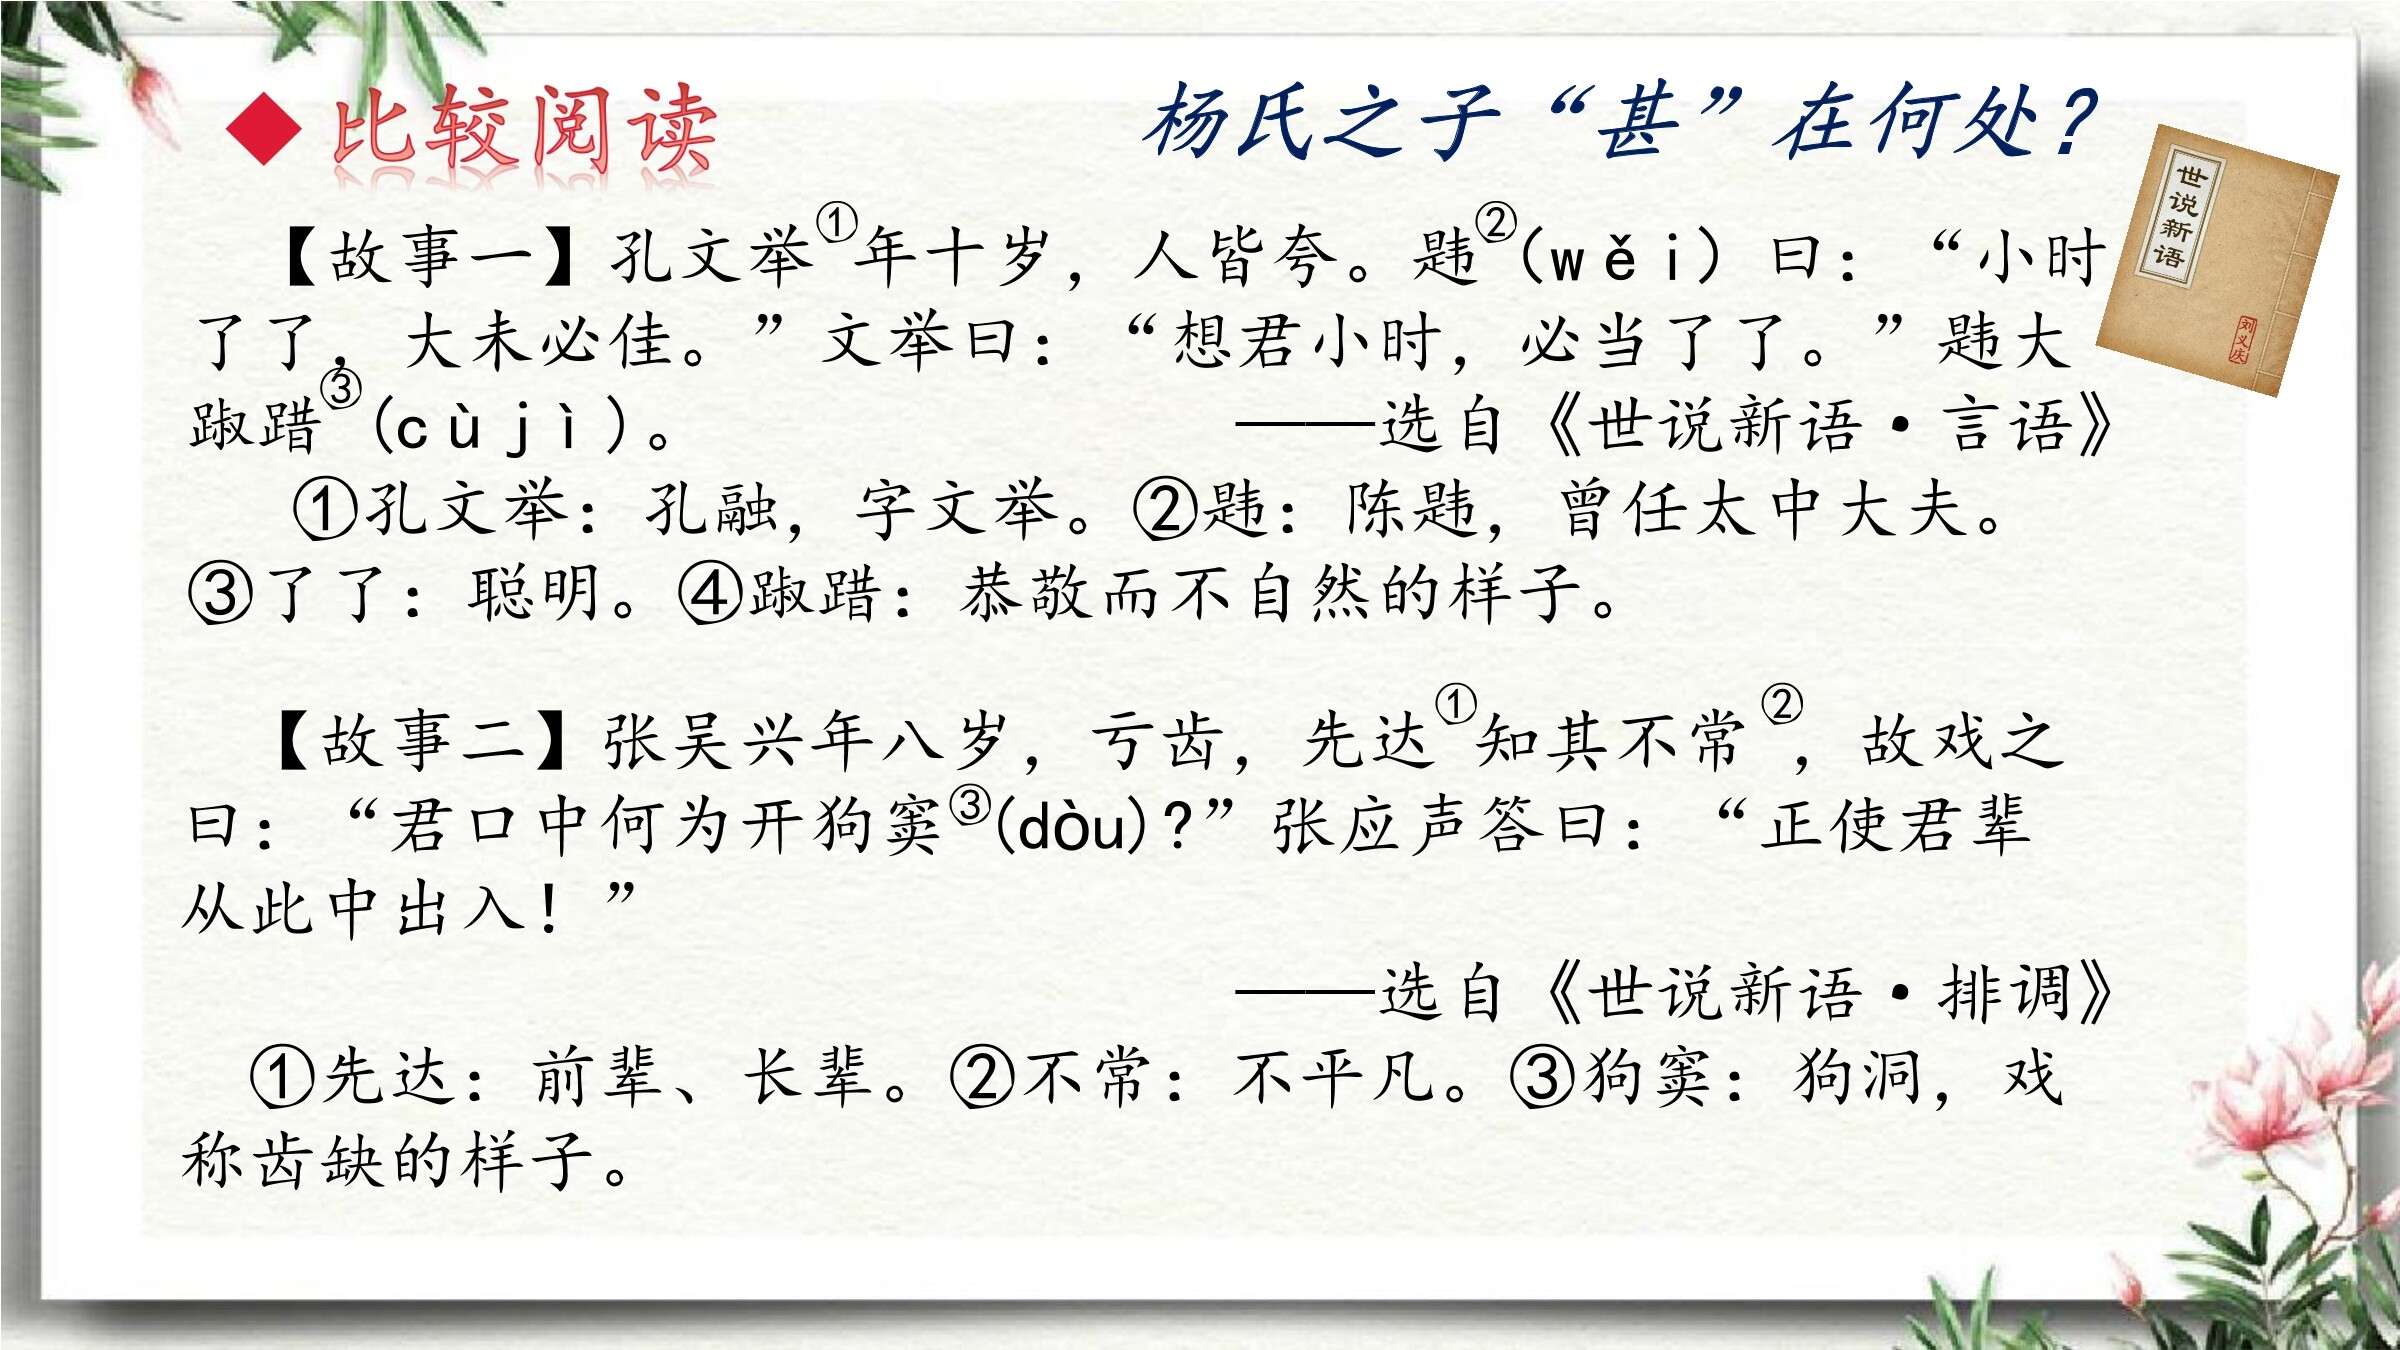 ◆ 比较阅读
杨氏之子“甚”在何处？
世说新语
刘义庆
【故事一】孔文举①年十岁，人皆夸。韪②(wěi) 曰：“小时
了了，大未必佳。”文举曰：“想君小时，必当了了。”韪大
踧踖③(cù jì)。 ——选自《世说新语·言语》
①孔文举：孔融，字文举。②韪：陈韪，曾任太中大夫。
③了了：聪明。④踧踖：恭敬而不自然的样子。
【故事二】张吴兴年八岁，亏齿，先达①知其不常②，故戏之
曰：“君口中何为开狗窦③(dòu)?”张应声答曰：“正使君辈
从此中出入！”
——选自《世说新语·排调》
①先达：前辈、长辈。②不常：不平凡。③狗窦：狗洞，戏
称齿缺的样子。